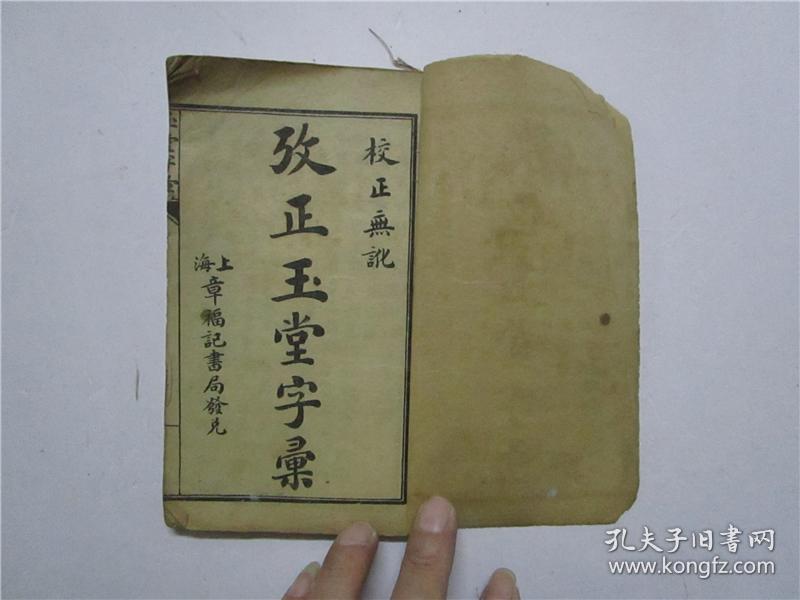 校正無訛
攷正玉堂字彙
上海章福記書局發兌
孔夫子旧书网
www.kongfz.com